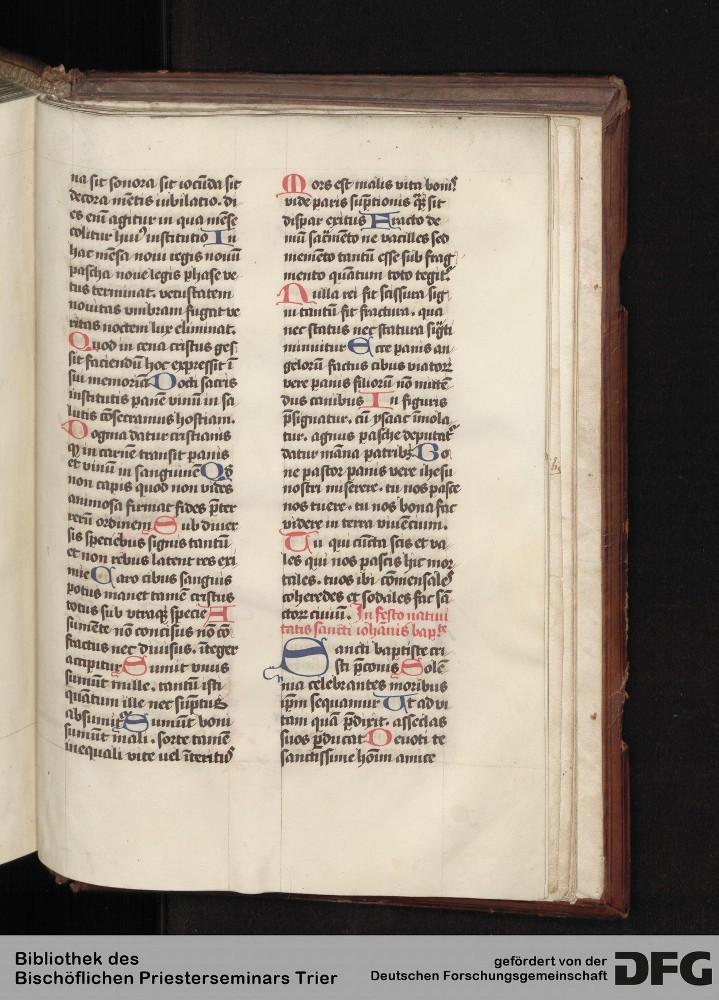 na sit sonora sit iocūda sit
decora mētis iubilatio. di
es eni͂ agitur in qua mēse
colitur huiꝰ institutio In
hac mēsa noui regis nouū
pascha noue legis phase ve
tus terminat. vetustatem
nouitas vmbram fugat ve
ritas noctem lux eliminat.
Quod in cena cristus ges
sit faciendū hoc expressit ī
sui memoriā Docti sacris
institutis panē vinū in sa
lutis cōsecramus hostiam.
Dogma datur cristianis
ꝙ in carnē transit panis
et vinū in sanguinē Qḍ
non capis quod non vides
animosa firmat fides p̄ter
rerū ordinem Sub diuer
sis speciebus signis tantū
et non rebus latent res exi
mie Caro cibus sanguis
potus manet tamē cristus
totus sub vtraqꝫ specie A
sumēte nō concisus nō cō
fractus nec diuisus. īteger
accipitur Sumit vnus
sumūt mille. tantū isti
quātum ille nec sūptus
absumitᷣ Sumūt boni
sumūt mali. sorte tamē
inequali vite uel īteritꝰ
Mors est malis vita boniᷤ
vide paris sūptionis qᷓꝫ sit
dispar exitus Fracto de
mū sac̄mēto ne vacilles sed
memēto tantū esse sub frag
mento quātum toto tegitᷣ
Nulla rei fit scissura sig
ni tantū fit fractura. qua
nec status nec statura sigti
minuitur Ecce panis an
gelorū factus cibus viatoꝝ
vere panis filiorū nō mittē
dus canibus In figuris
p̄signatur. cū ysaac īmola
tur. agnus pasche deputatᷣ
datur māna patribꝫ Bo
ne pastor panis vere ihesu
nostri miserere. tu nos pasce
nos tuere. tu nos bona fac
videre in terra viuēcium.
Tu qui cūcta scis et va
les qui nos pascis hic mor
tales. tuos ibi cōmensales
coheredes et sodales fac sā
ctoꝝ ciuiū. In festo natiui
tatis sancti iohānis bapᵗᵉ
Sancti baptiste cri
sti p̄conis Solē
nia celebrantes moribus
ip̄m sequamur Ut ad vi
tam quā p̄dixit. asseclas
suos ꝑducat Deuoti te
sanctissime hoīm amice
Bibliothek des
Bischöflichen Priesterseminars Trier
gefördert von der
Deutschen Forschungsgemeinschaft
DFG